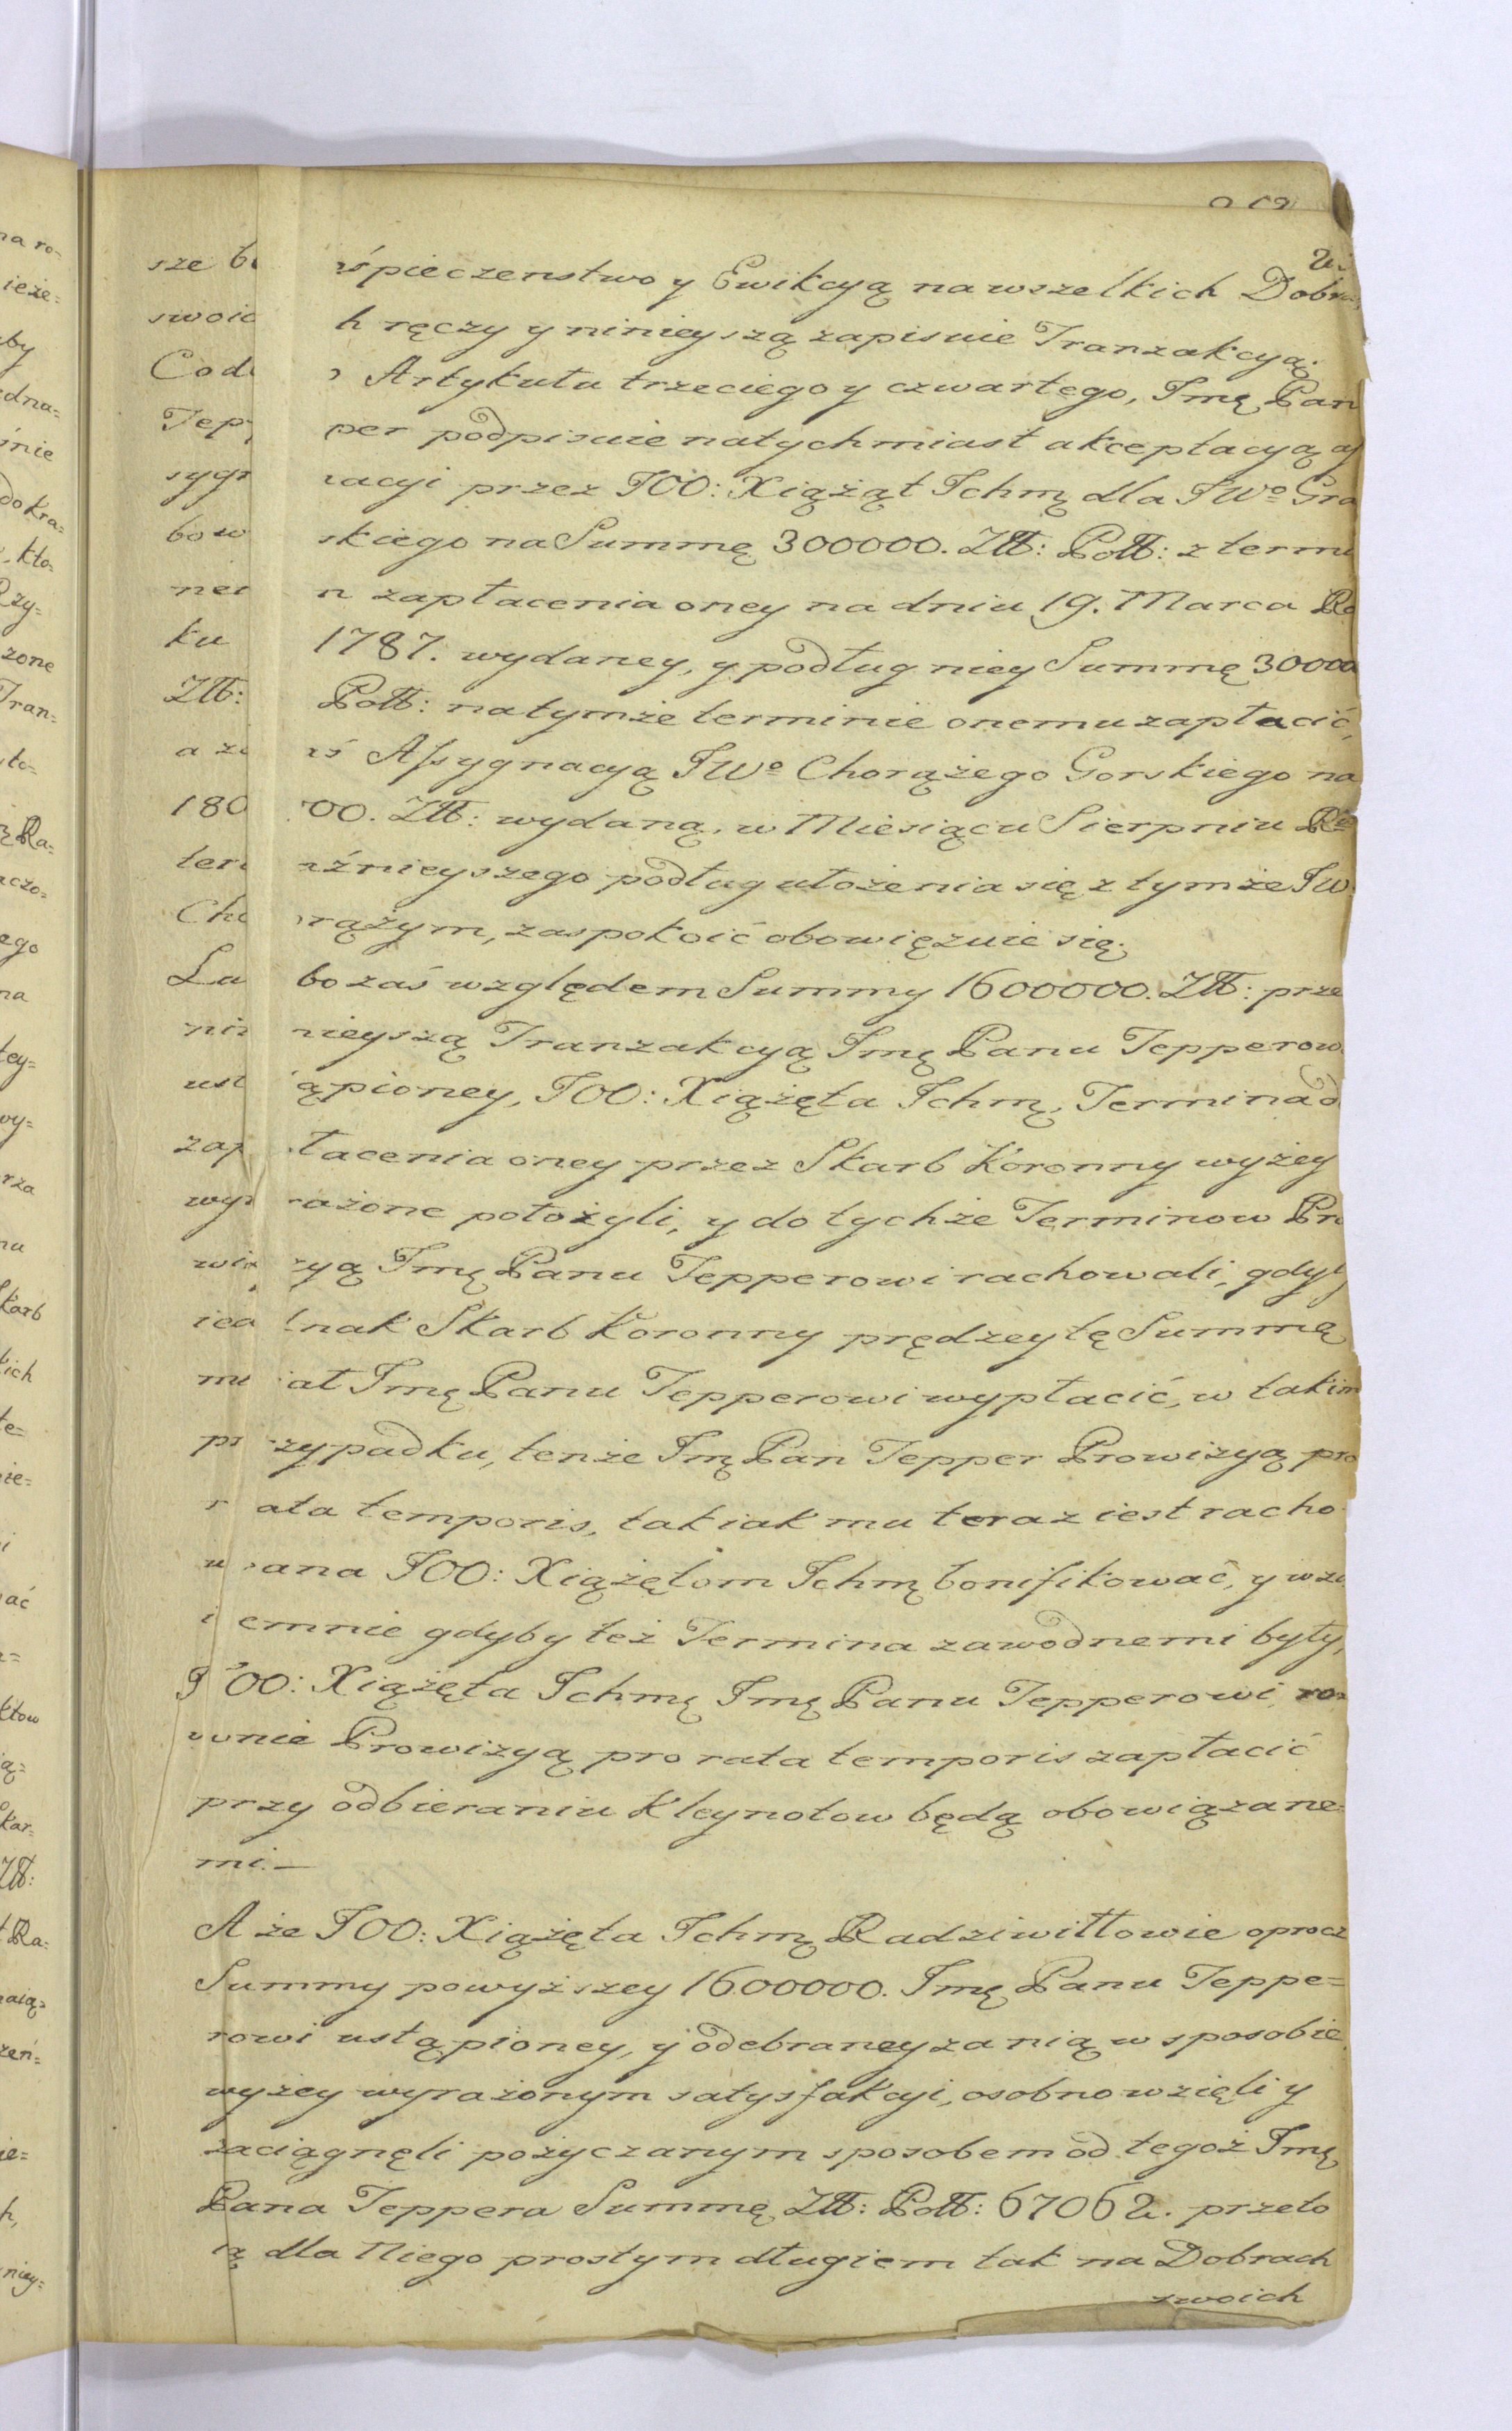 sze be śpieczenstwo y Ewikcyą na wszelkich Dobra
swoic h ręczy y ninieyszą zapisuie Tranzakcyą.
Codo Artykułu trzeciego y czwartego, Jmę Pan
Tepper podpisuie natychmiast akceptacyą as
sygnacyi przez JOO: Xiążąt Jchmę dla JWo Gra
bowskiego na Summę 300000. Złł: Polł: z termi
nem zapłacenia oney na dniu 19. Marca Ro
ku 1787. wydaney, y podług niey Summę 30000
Złł: Polł: na tymże terminie onemu zapłacić,
a zaś Assygnacyą JWo Chorążego Gorskiego na
180 000. Złł: wydaną, w Miesiącu Sierpniu Ru
teraźnieyszego podług ułożenia się z tymże JW.
Chorążym, zaspokoić obowięzuie się.
Lubo zaś względem Summy 1600000. Złł: prze
ninieyszą Tranzakcyą Jmę Panu Tepperow
ustąpioney, JOO: Xiążęta Jchmę, Termina d
zapłacenia oney przez Skarb Koronny wyżey
wyrażone położyli, y do tychże Terminow Pro
wizyą Jmę Panu Tepperowi rachowali, gdyby
iednak Skarb Koronny prędzey tę Summę
miał Jmę Panu Tepperowi wypłacić, w takim
przypadku, tenże Jmę Pan Tepper Prowizyą pro
rata temporis, tak iak mu teraz iest racho
wana JOO: Xiążętom Jchmę bonifikować, y wza
iemnie gdyby też Termina zawodnemi były,
JOO: Xiążęta Jchmę Jmę Panu Tepperowi, ro=
wnie Prowizyą pro rata temporis zapłacić
przy odbieraniu Kleynotow będą obowiązane=
mi.—
A że JOO: Xiążęta Jchmę Radziwiłłowie oprocz
Summy powyższey 1600000. Jmę Panu Teppe=
rowi ustąpioney, y odebraney za nią w sposobie
wyżey wyrażonym satysfakcyi, osobno wzięli y
zaciągnęli pożyczanym sposobem od tegoż Jmę
Pana Teppera Summę Złł: Polł: 67062. przeto
ią dla Niego prostym długiem tak na Dobrach
swoich